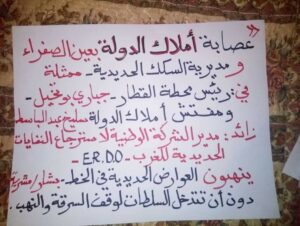 عصابة أملاك الدولة بعين الصفراء
و مديرية السكك الحديدية - ممثلة
في: رئيس محطة القطار - جباري بوخيل -
و مفتش أملاك الدولة عبد الباسط
زائد: مدير الشركة الوطنية لاسترجاع النفايات
الحديدية للغرب - E.R.DO -
ينهبون العوارض الحديدية في الخط - بشار/مشرية
دون أن تتدخل السلطات لوقف السرقة والنهب.